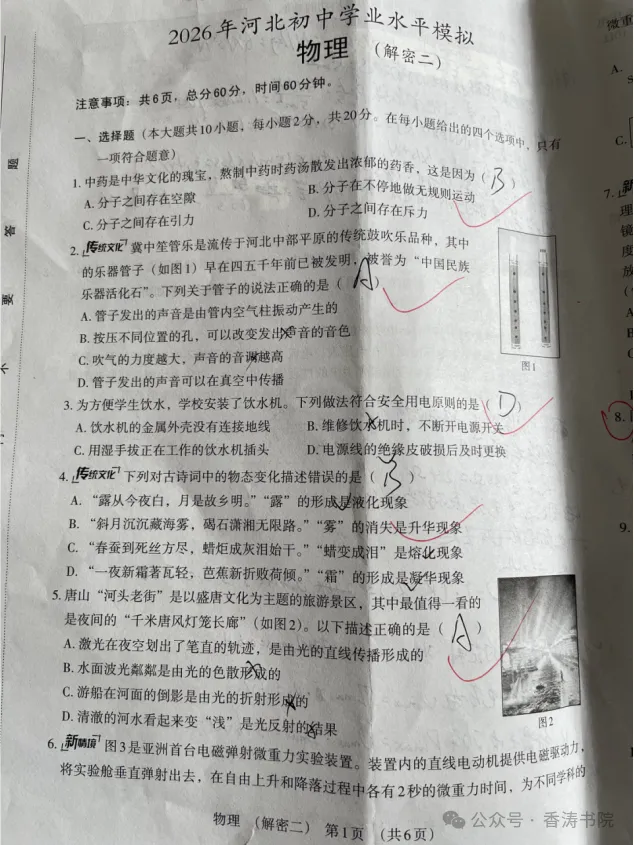 2026年河北初中学业水平模拟
物理 (解密二)
注意事项：共6页，总分60分，时间60分钟。
一、选择题（本大题共10小题，每小题2分，共20分。在每小题给出的四个选项中，只有
一项符合题意）
1. 中药是中华文化的瑰宝，熬制中药时药汤散发出浓郁的药香，这是因为（ B ）
A. 分子之间存在空隙 B. 分子在不停地做无规则运动
C. 分子之间存在引力 D. 分子之间存在斥力
2. 传统文化 冀中笙管乐是流传于河北中部平原的传统鼓吹乐品种，其中
的乐器管子（如图1）早在四五千年前已被发明，被誉为“中国民族
乐器活化石”。下列关于管子的说法正确的是（ A ）
A. 管子发出的声音是由管内空气柱振动产生的
B. 按压不同位置的孔，可以改变发出声音的音色
C. 吹气的力度越大，声音的音调越高
D. 管子发出的声音可以在真空中传播
图1
3. 为方便学生饮水，学校安装了饮水机。下列做法符合安全用电原则的是（ D ）
A. 饮水机的金属外壳没有连接地线 B. 维修饮水机时，不断开电源开关
C. 用湿手拔正在工作的饮水机插头 D. 电源线的绝缘皮破损后及时更换
4. 传统文化 下列对古诗词中的物态变化描述错误的是（ B ）
A. “露从今夜白，月是故乡明。”“露”的形成是液化现象
B. “斜月沉沉藏海雾，碣石潇湘无限路。”“雾”的消失是升华现象
C. “春蚕到死丝方尽，蜡炬成灰泪始干。”“蜡变成泪”是熔化现象
D. “一夜新霜著瓦轻，芭蕉新折败荷倾。”“霜”的形成是凝华现象
5. 唐山“河头老街”是以盛唐文化为主题的旅游景区，其中最值得一看的
是夜间的“千米唐风灯笼长廊”（如图2）。以下描述正确的是（ A ）
A. 激光在夜空划出了笔直的轨迹，是由光的直线传播形成的
B. 水面波光粼粼是由光的色散形成的
C. 游船在河面的倒影是由光的折射形成的
D. 清澈的河水看起来变“浅”是光反射的结果
图2
6. 新情境 图3是亚洲首台电磁弹射微重力实验装置。装置内的直线电动机提供电磁驱动力，
将实验舱垂直弹射出去，在自由上升和降落过程中各有2秒的微重力时间，为不同学科的
物理 (解密二) 第1页 (共6页)
题
答
要
不
微重
A.
C.
7. 新
理
镜
度
放
(
A
B
C
8.
9.
公众号·香涛书院